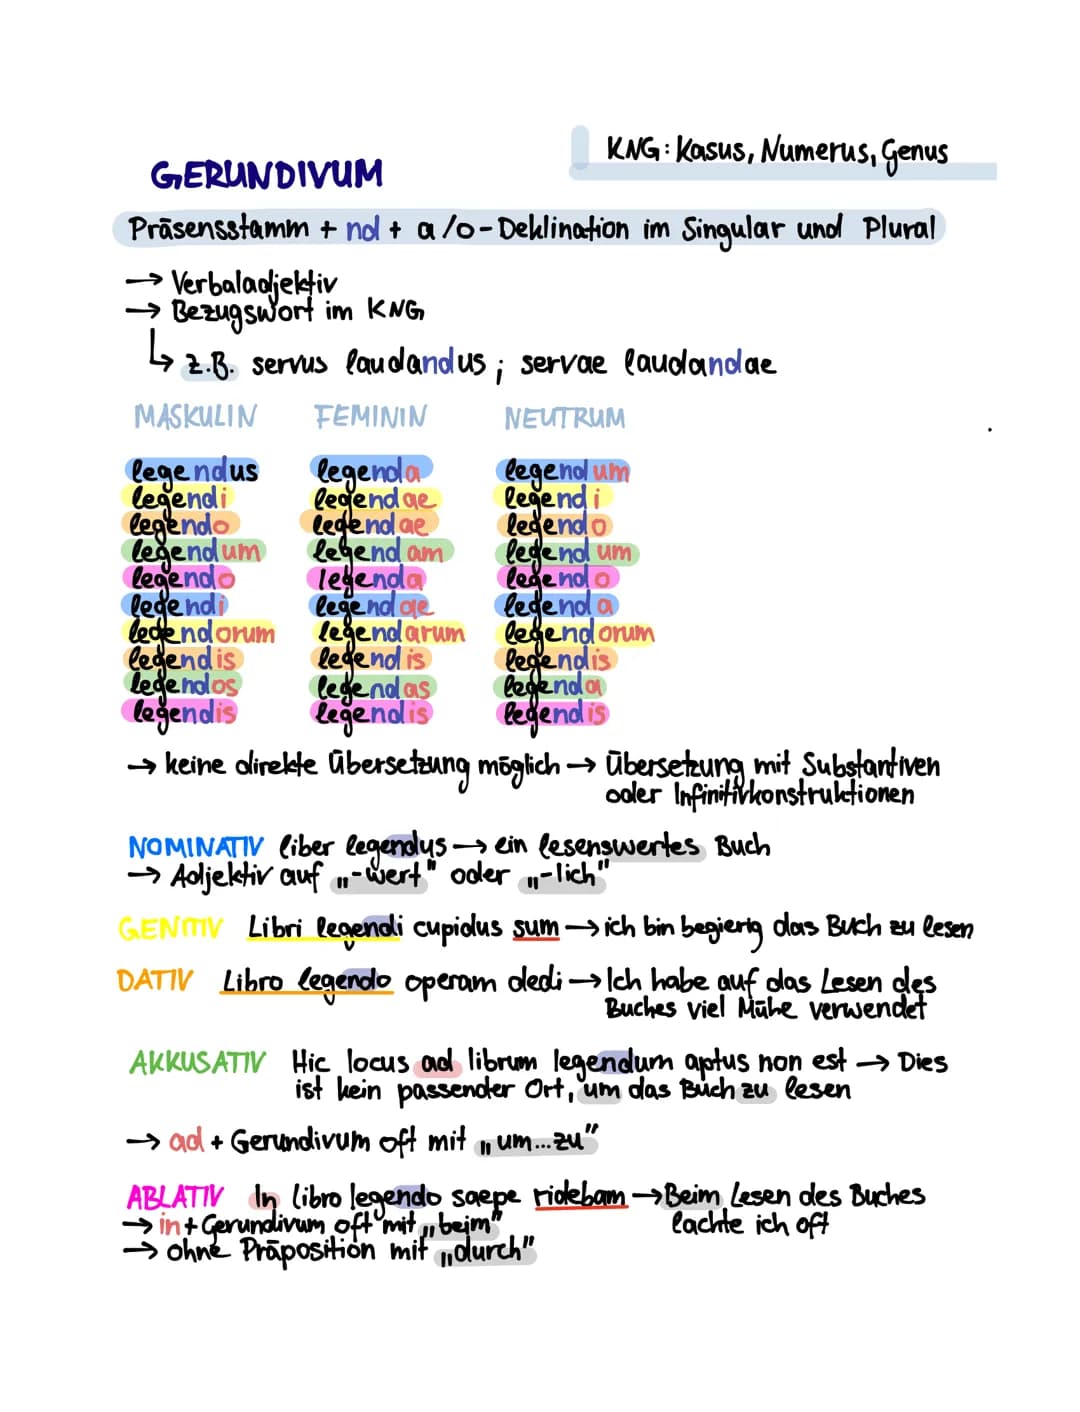 KNG: Kasus, Numerus, Genus
GERUNDIVUM
Präsensstamm + nd + a/o-Deklination im Singular und Plural
→ Verbaladjektiv
→ Bezugswort im KNG
↳ z.B. servus laudandus ; servae laudandae
MASKULIN FEMININ NEUTRUM
legendus legenda legendum
legendi legendae legendi
legendo legendae legendo
legendum legendam legendum
legendo legenda legendo
legendi legendae legenda
legendorum legendarum legendorum
legendis legendis legendis
legendos legendas legenda
legendis legendis legendis
→ keine direkte Übersetzung möglich → Übersetzung mit Substantiven
oder Infinitivkonstruktionen
NOMINATIV liber legendus → ein lesenswertes Buch
→ Adjektiv auf „-wert" oder „-lich"
GENITIV Libri legendi cupidus sum → ich bin begierig das Buch zu lesen
DATIV Libro legendo operam dedi → Ich habe auf das Lesen des
Buches viel Mühe verwendet
AKKUSATIV Hic locus ad librum legendum aptus non est → Dies
ist kein passender Ort, um das Buch zu lesen
→ ad + Gerundivum oft mit „um...zu"
ABLATIV In libro legendo saepe ridebam → Beim Lesen des Buches
lachte ich oft
→ in + Gerundivum oft mit „beim"
→ ohne Präposition mit „durch"